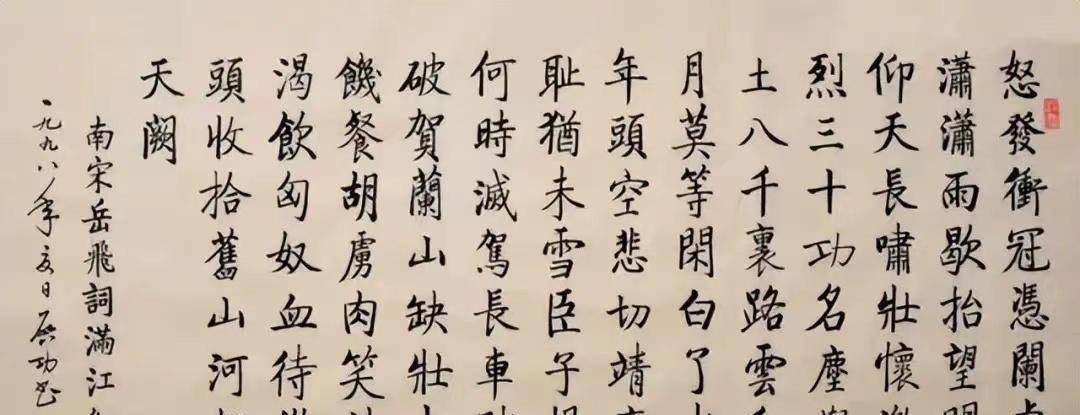 怒發衝冠憑闌
瀟瀟雨歇抬望
仰天長嘯壯懷
烈三十功名塵
土八千裏路雲
月莫等閑白了
年頭空悲切靖
耻猶未雪臣子
何時滅駕長車
破賀蘭山缺壯
饑餐胡虜肉笑
渴飲匈奴血待
頭收拾舊山河
天闕
南宋岳飛詞滿江
一九九八年夏日启功书